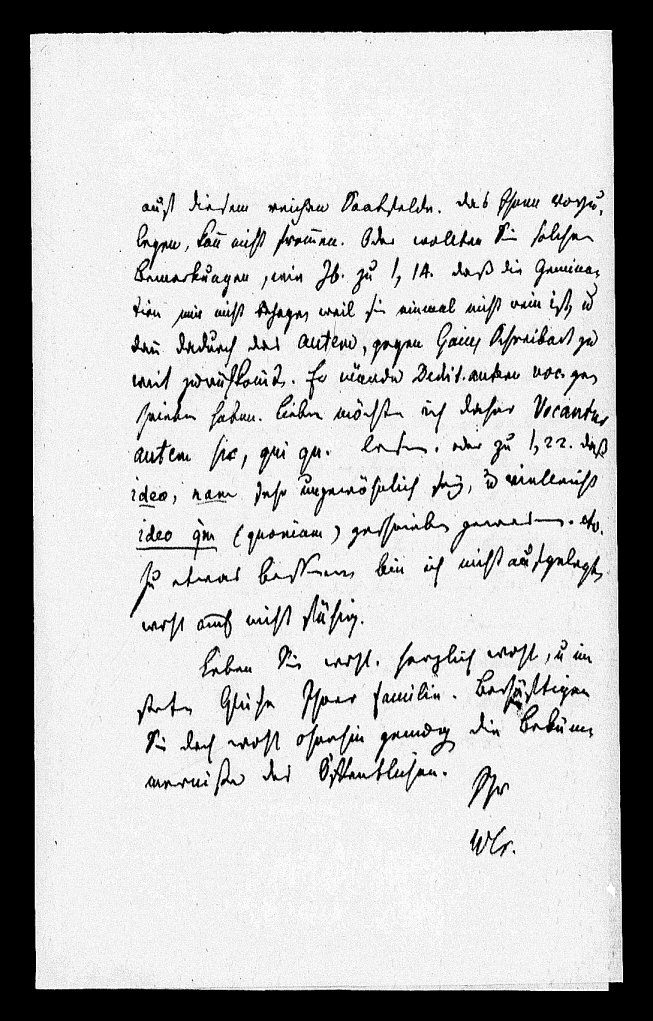 auch diesem reichen Saatfelde. das Ihnen vorzu-
legen, kañ nicht from̃en. Oder wollten Sie solche
Bemerkungen, wie zb. zu 1, 14. daß die Gemina-
tion mir nicht behage, weil sie einmal nicht rein ist, u
dañ dadurch das autem, gegen Gaius Schreibart zu
weit zurückkom̃t. Er würde Dedit. autem voc. ge-
schrieben haben. Lieber möchte ich daher Vocantur
autem sic, qui qu. lesen. oder zu 1, 22. daß
ideo, nam sehr ungewöhnlich sey, u vielleicht
ideo qm (quoniam) geschrieben gewesen. etc.
Zu etwas besserem bin ich nicht aufgelegt,
wohl auch nicht fähig.
Leben Sie wohl. herzlich wohl, u im
steten Glücke Ihrer Familie. Beschäftigen
Sie doch wohl ohnehin genug die Beküm-
mernisse des Öffentlichen.
Ihr